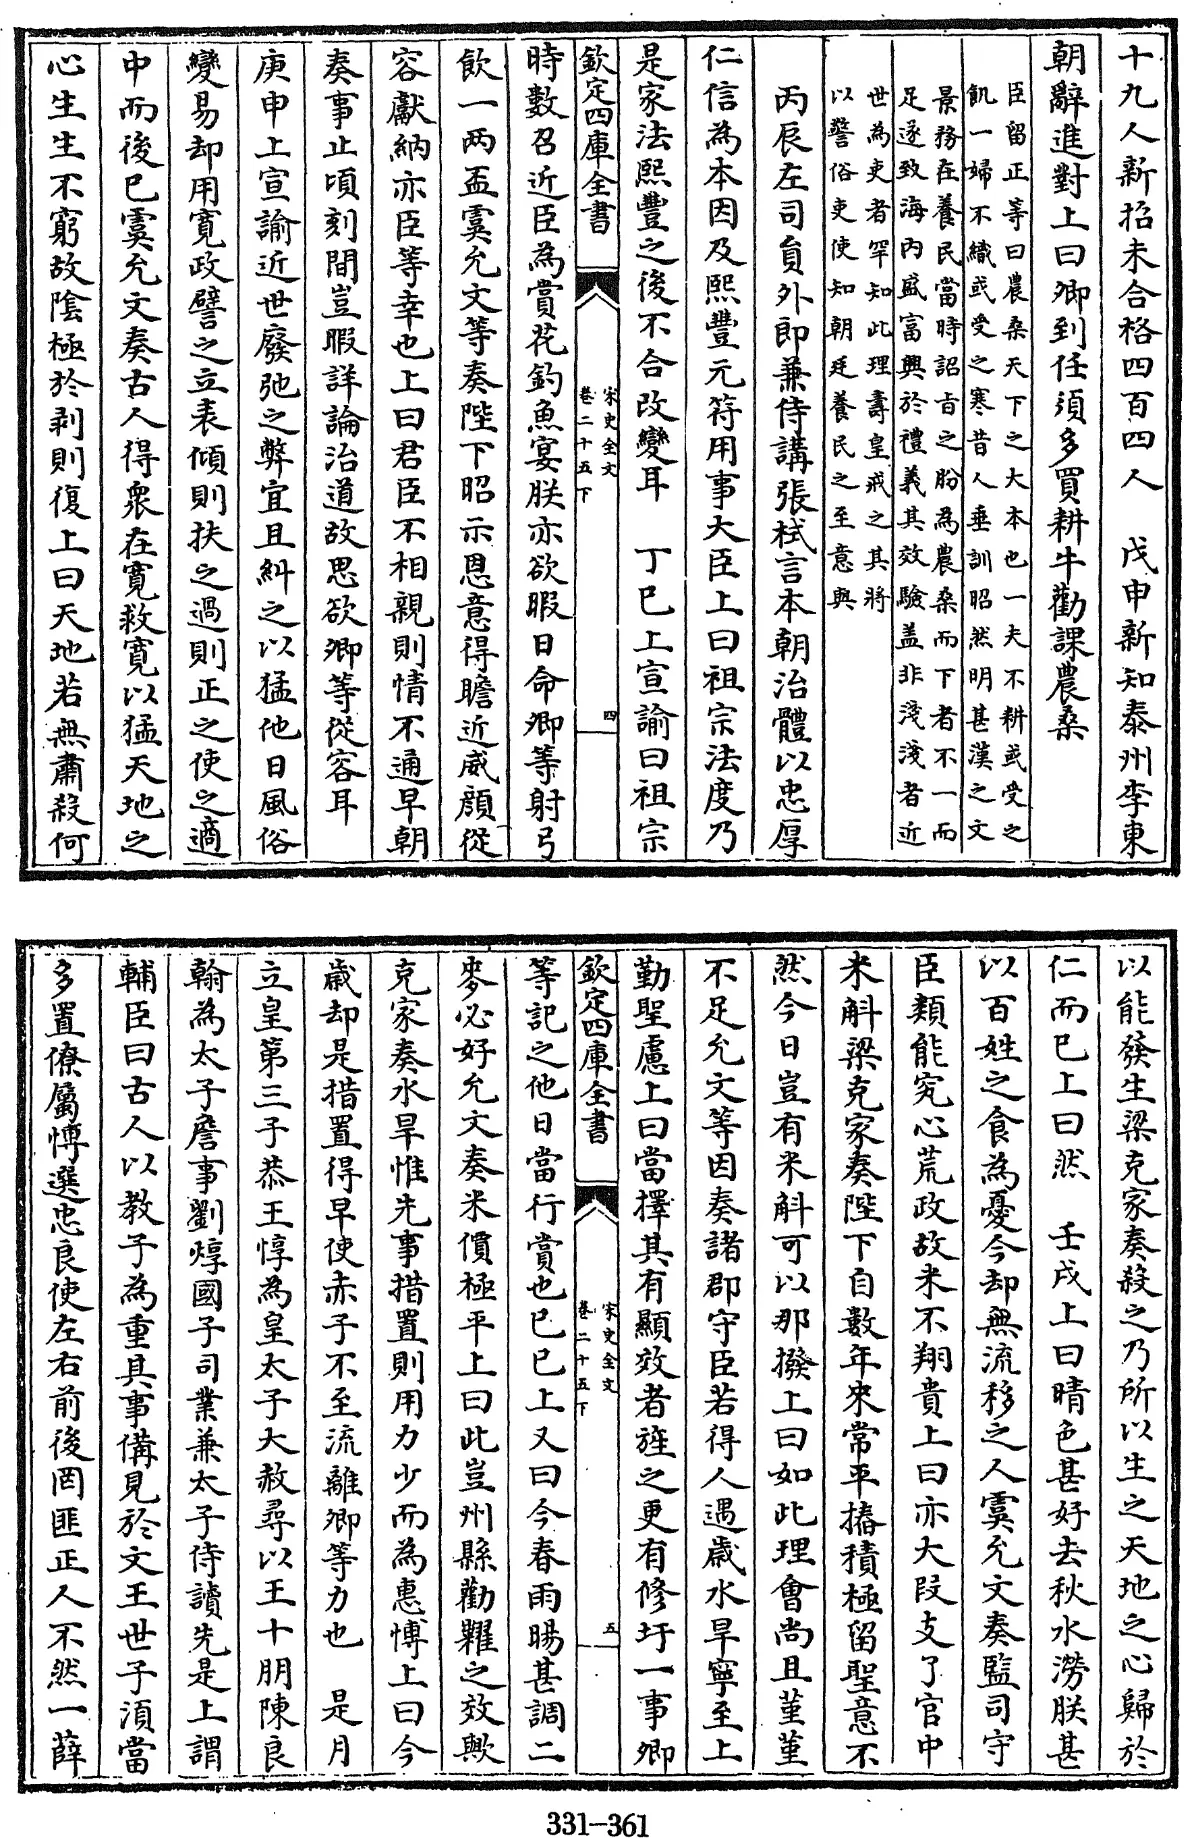 十九人新招未合格四百四人　戊申新知泰州李東
朝辭進對上曰卿到任須多買耕牛勸課農桑
臣留正等曰農桑天下之大本也一夫不耕或受之
飢一婦不織或受之寒昔人垂訓昭然明甚漢之文
景務在養民當時詔旨之肦為農桑而下者不一而
足遂致海内盛富興於禮義其效驗盖非淺淺者近
世為吏者罕知此理壽皇戒之其將
以警俗吏使知朝廷養民之至意與
丙辰左司員外郎兼侍講張栻言本朝治體以忠厚
仁信為本因及熙豐元符用事大臣上曰祖宗法度乃
是家法熙豐之後不合改變耳　丁巳上宣諭曰祖宗
欽定四庫全書
宋史全文
卷二十五下
四
時數召近臣為賞花釣魚宴朕亦欲暇日命卿等射弓
飲一两盃虞允文等奏陛下昭示恩意得瞻近威顔從
容獻納亦臣等幸也上曰君臣不相親則情不通早朝
奏事止頃刻間豈暇詳論治道故思欲卿等從容耳
庚申上宣諭近世廢弛之弊宜且糾之以猛他日風俗
變易却用寛政譬之立表傾則扶之過則正之使之適
中而後已虞允文奏古人得衆在寛救寛以猛天地之
心生生不窮故陰極於剥則復上曰天地若無肅殺何
以能發生梁克家奏殺之乃所以生之天地之心歸於
仁而已上曰然　壬戌上曰晴色甚好去秋水澇朕甚
以百姓之食為憂今却無流移之人虞允文奏監司守
臣類能究心荒政故米不翔貴上曰亦大段支了官中
米斛梁克家奏陛下自數年來常平樁積極留聖意不
然今日豈有米斛可以那撥上曰如此理會尚且堇堇
不足允文等因奏諸郡守臣若得人遇歲水旱寧至上
勤聖慮上曰當擇其有顯效者旌之更有修圩一事卿
欽定四庫全書
宋史全文
卷二十五下
五
等記之他日當行賞也己巳上又曰今春雨暘甚調二
麥必好允文奏米價極平上曰此豈州縣勸糶之效歟
克家奏水旱惟先事措置則用力少而為惠博上曰今
歲却是措置得早使赤子不至流離卿等力也　是月
立皇第三子恭王惇為皇太子大赦尋以王十朋陳良
翰為太子詹事劉焞國子司業兼太子侍讀先是上謂
輔臣曰古人以教子為重其事備見於文王世子須當
多置僚屬博選忠良使左右前後罔匪正人不然一薛
331-361